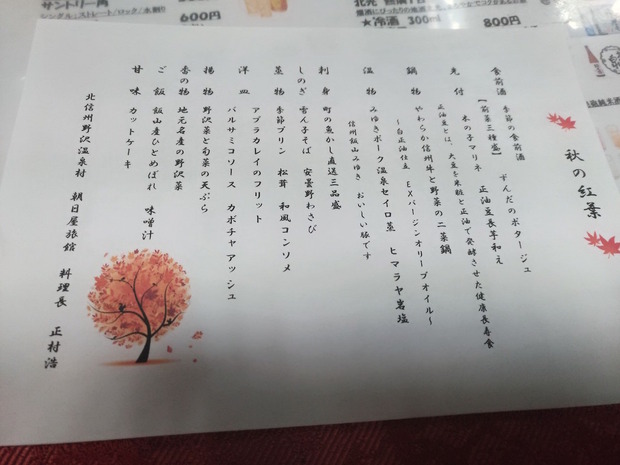 サントリー角
シングル:ストレート/ロック/水割り
600円
★冷酒 300ml
800円
秋の紅葉
食前酒 季節の食前酒 ずんだのポタージュ
【前菜三種盛】
木の子マリネ 正油豆長芋和え
正油豆とは、大豆を米糀と正油で発酵させた健康長寿食
先付
鍋物 やわらか信州牛と野菜の二菜鍋
～白正油仕立 EXバージンオリーブオイル～
温物 みゆきポーク温泉セイロ蒸 ヒマラヤ岩塩
信州飯山みゆき おいしい豚です
刺身 町の魚かし直送三品盛
しのぎ 雪ん子そば 安曇野わさび
蒸物 季節プリン 松茸 和風コンソメ
洋皿 アブラカレイのフリット
バルサミコソース カボチャアッシュ
揚物 野沢菜と旬菜の天ぷら
香の物 地元名産の野沢菜
ご飯 飯山産ひとめぼれ 味噌汁
甘味 カットケーキ
北信州野沢温泉村 朝日屋旅館 料理長 正村浩